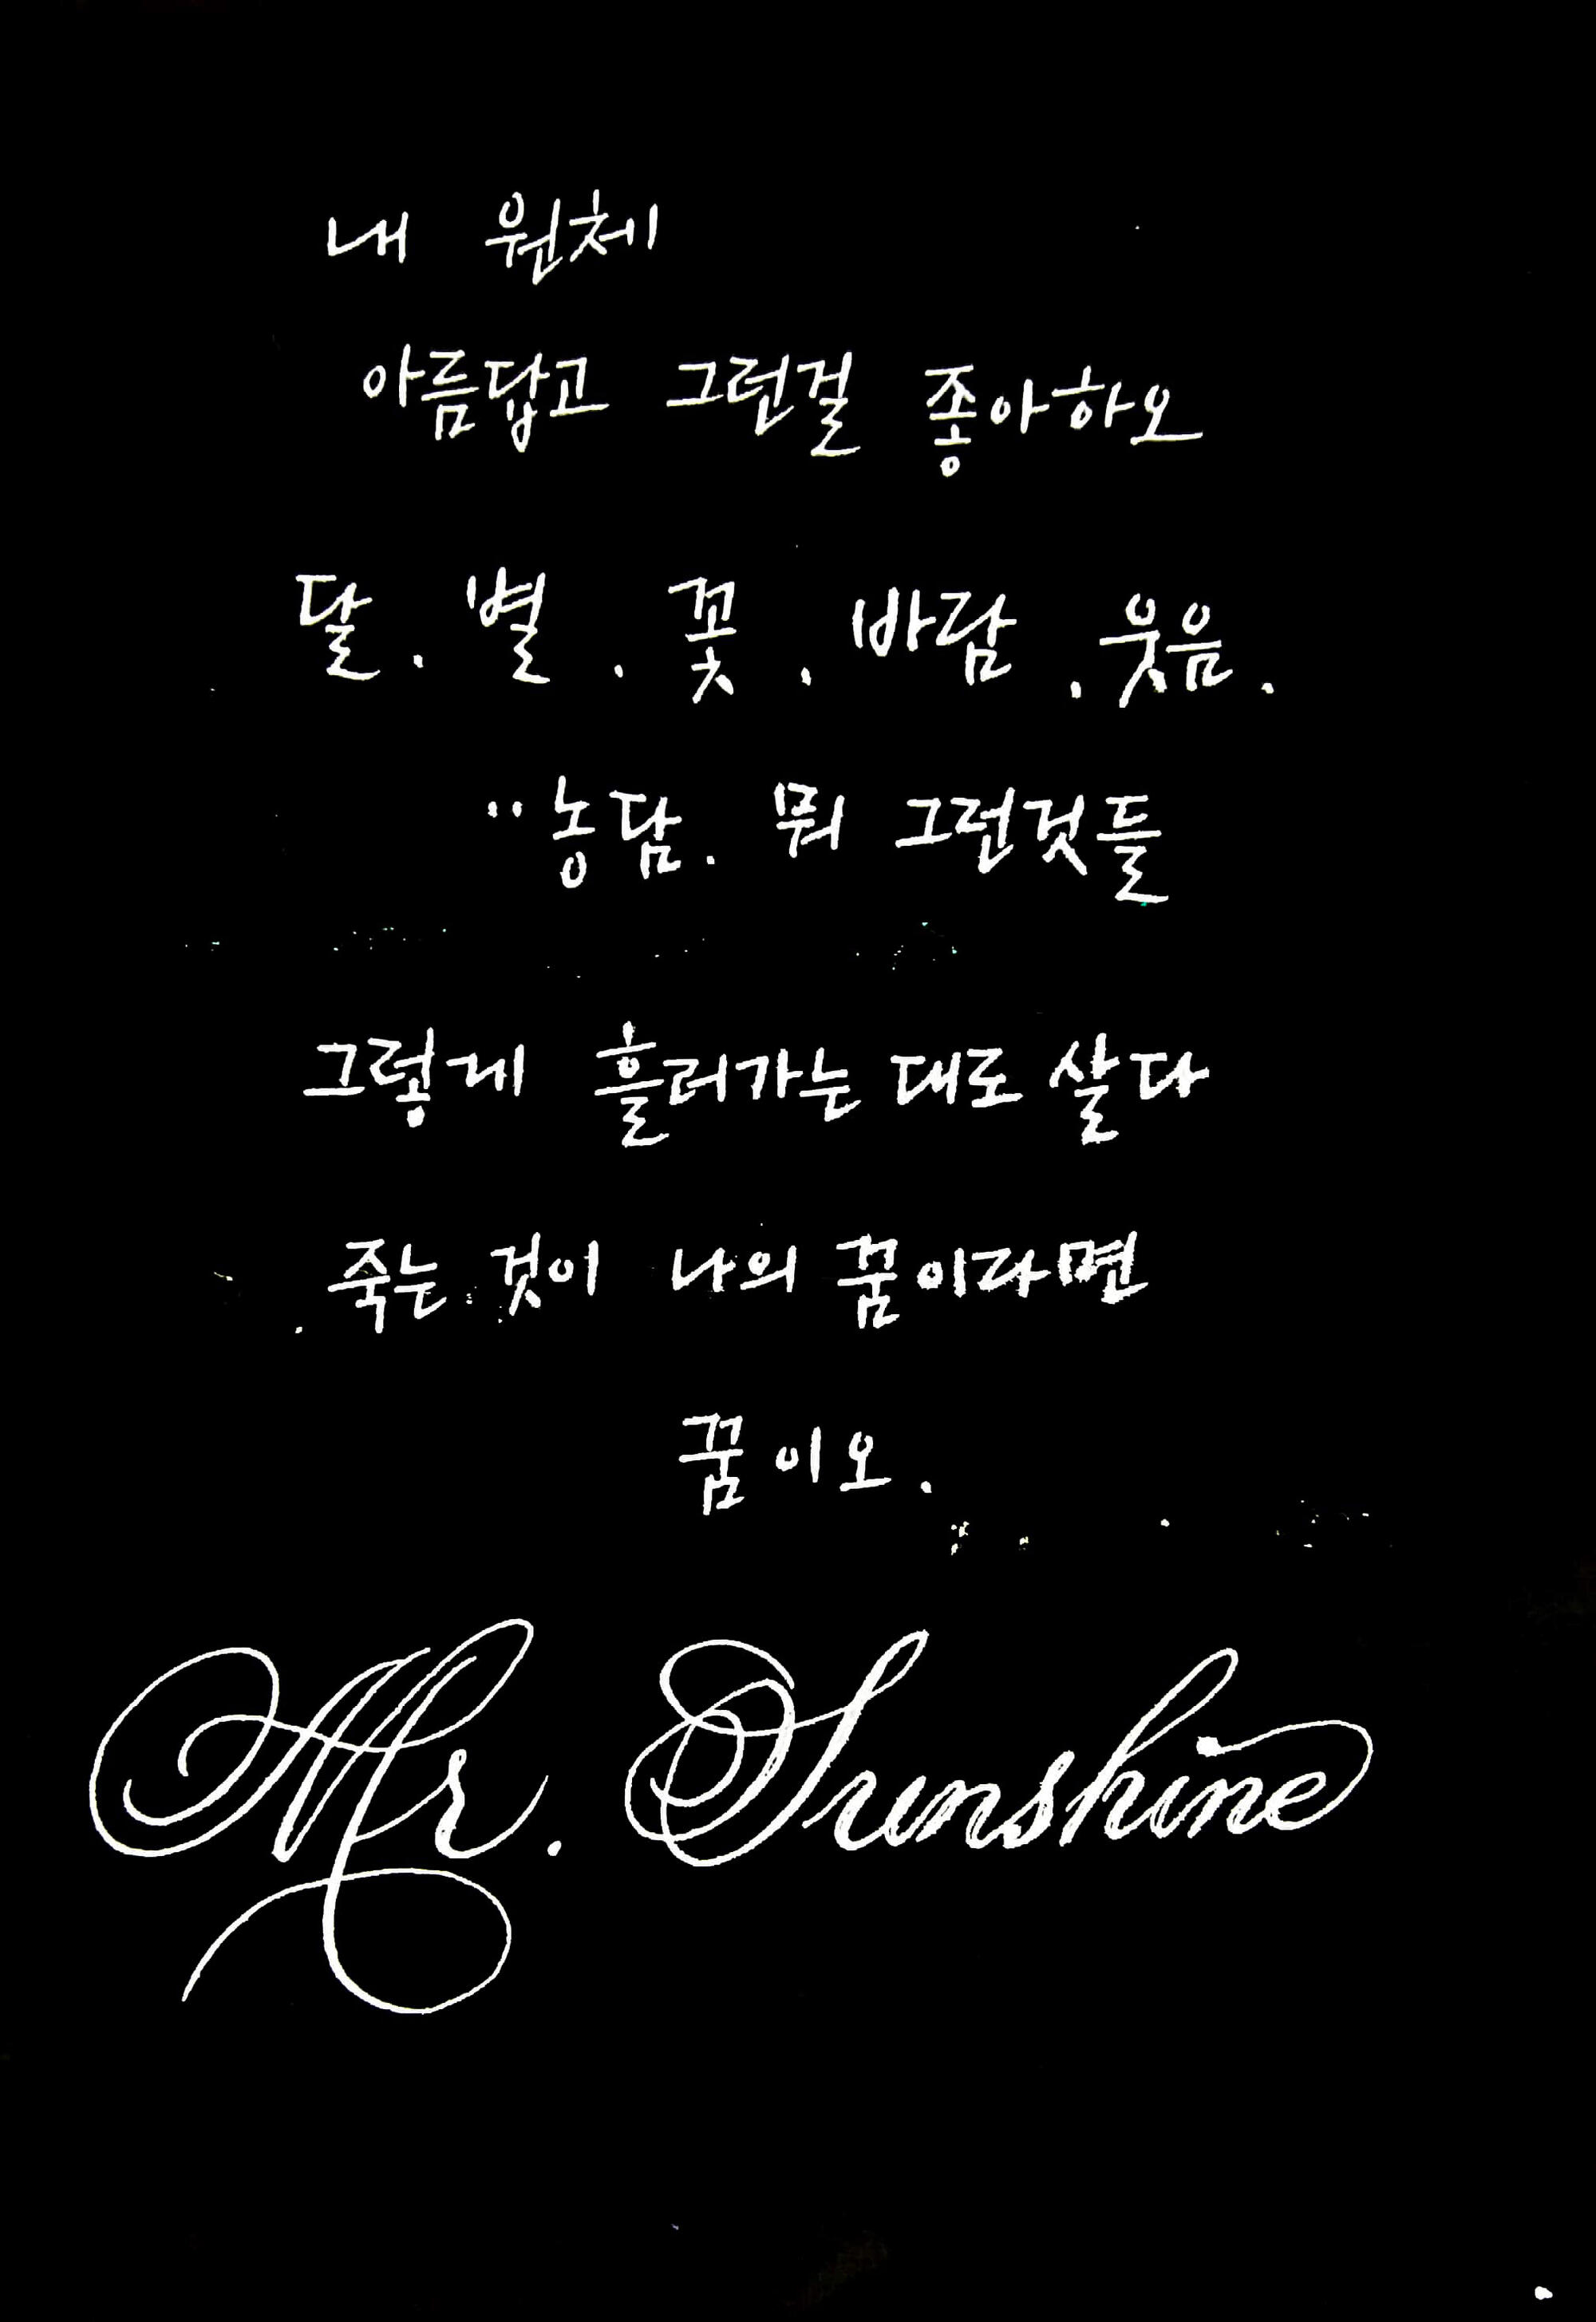 내 원체
아름답고 그런걸 좋아하오
달. 별. 꽃. 바람. 웃음.
"농담. 뭐 그런것들
그렇게 흘러가는 대로 살다
죽는 것이 나의 꿈이라면
꿈이오.
Mr. Sunshine